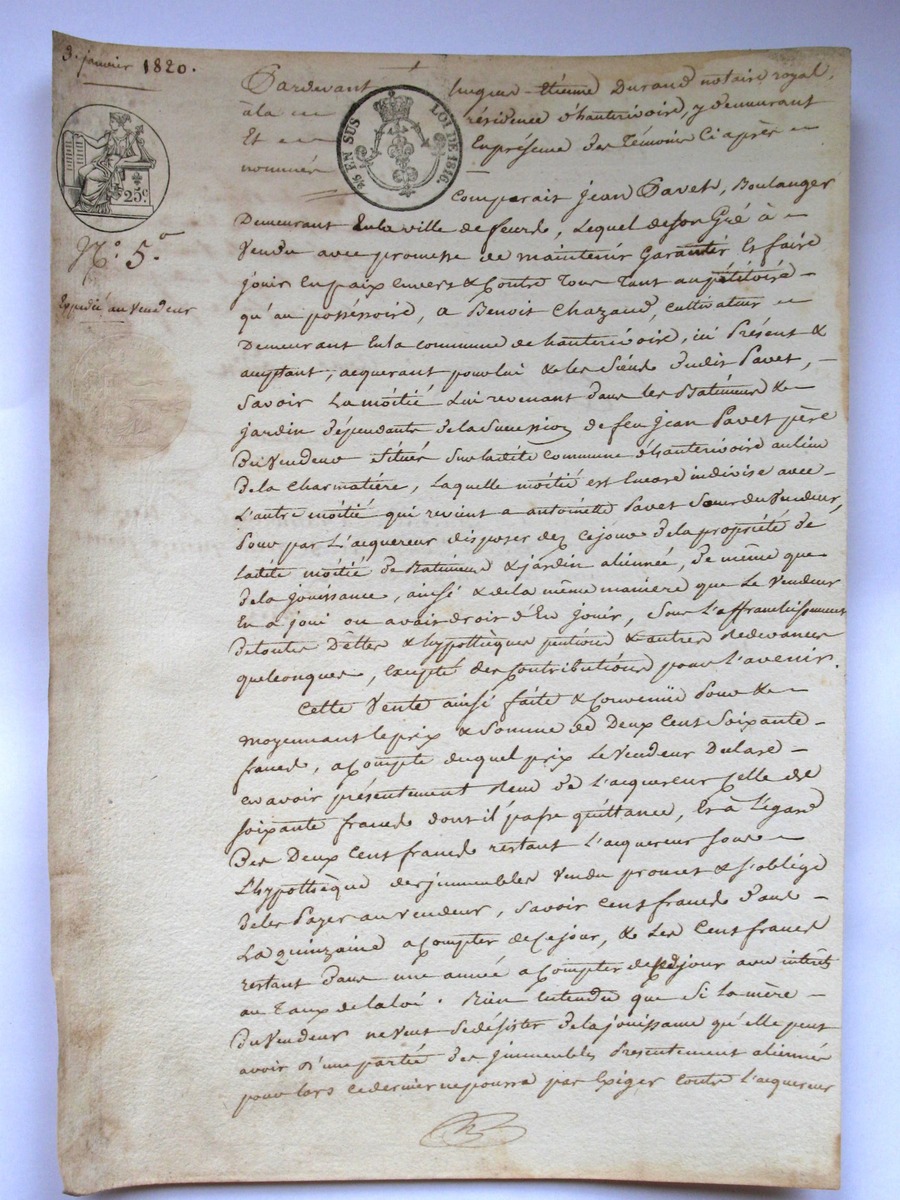 3. janvier 1820.
25c.
¼ EN SUS LOI DE 1816.
N.o 5.
Expédié au Vendeur
Pardevant Jacques Etienne Durand notaire royal,
à la résidence d'hauterivoire, y demeurant
Et En présence des Témoins Ci après
nommés
Comparait Jean Pavet, Boulanger
Demeurant En la ville de feurs, Lequel de son Gré à
Vendu avec promesse de maintenir Garantir Et faire
jouir En paix Envers & Contre Tous Tant au pétitoire
qu'au posséssoire, a Benoit Chazaud, cultivateur
Demeurant En la Commune de hauterivoire, ici Présent &
acceptant, acquerant pour lui & les Siens dudit Pavet,
Savoir La moitié Lui revenant dans les Batimens &
jardin dépendants de la Succession de feu Jean Pavet père
Du Vendeur Situés Sur ladite Commune d'hauterivoire au lieu
De la Charmatière, Laquelle moitié est Encore indivise avec
L'autre moitié qui revient a antoinette Pavet Sœur du Vendeur,
Pour par L'acquereur disposer dez ce jour de la propriété de
Ladite moitié de Batimens & jardin aliennée, de même que
de la jouissance, ainsi & de la même maniere que Le Vendeur
En a joui ou avait droit d'En jouir, Sous L'affranchissement
de toutes Dettes & hypothèques pentions & autres redevances
quelconques, Excepté des Contributions pour L'avenir.
Cette Vente ainsi faite & Convenüe Pour &
moyennant le prix & Somme de Deux Cent Soixante
francs, a Compte duquel prix Le Vendeur Déclare
en avoir présentement Reçu de L'acquereur Celle de
Soixante francs dont il passe quittance, Et à L'égard
Des Deux Cent francs restant L'acquereur Sous
L'hypothèque des jmmeubles Vendu promet & s'oblige
de les Payer au vendeur, Savoir Cent francs dans
La quinzaine a Compter de Ce jour, & Les Cent francs
restant dans une année a Compter de ce jour avec intérêts
au Taux de la loi. Bien Entendu que Si La mère
du Vendeur ne Veut se désister de la jouissance qu'elle peut
avoir d'une partie des jmmeubles Présentement alienné
pour lors ce dernier ne pourra pas Exiger Contre L'acquereur